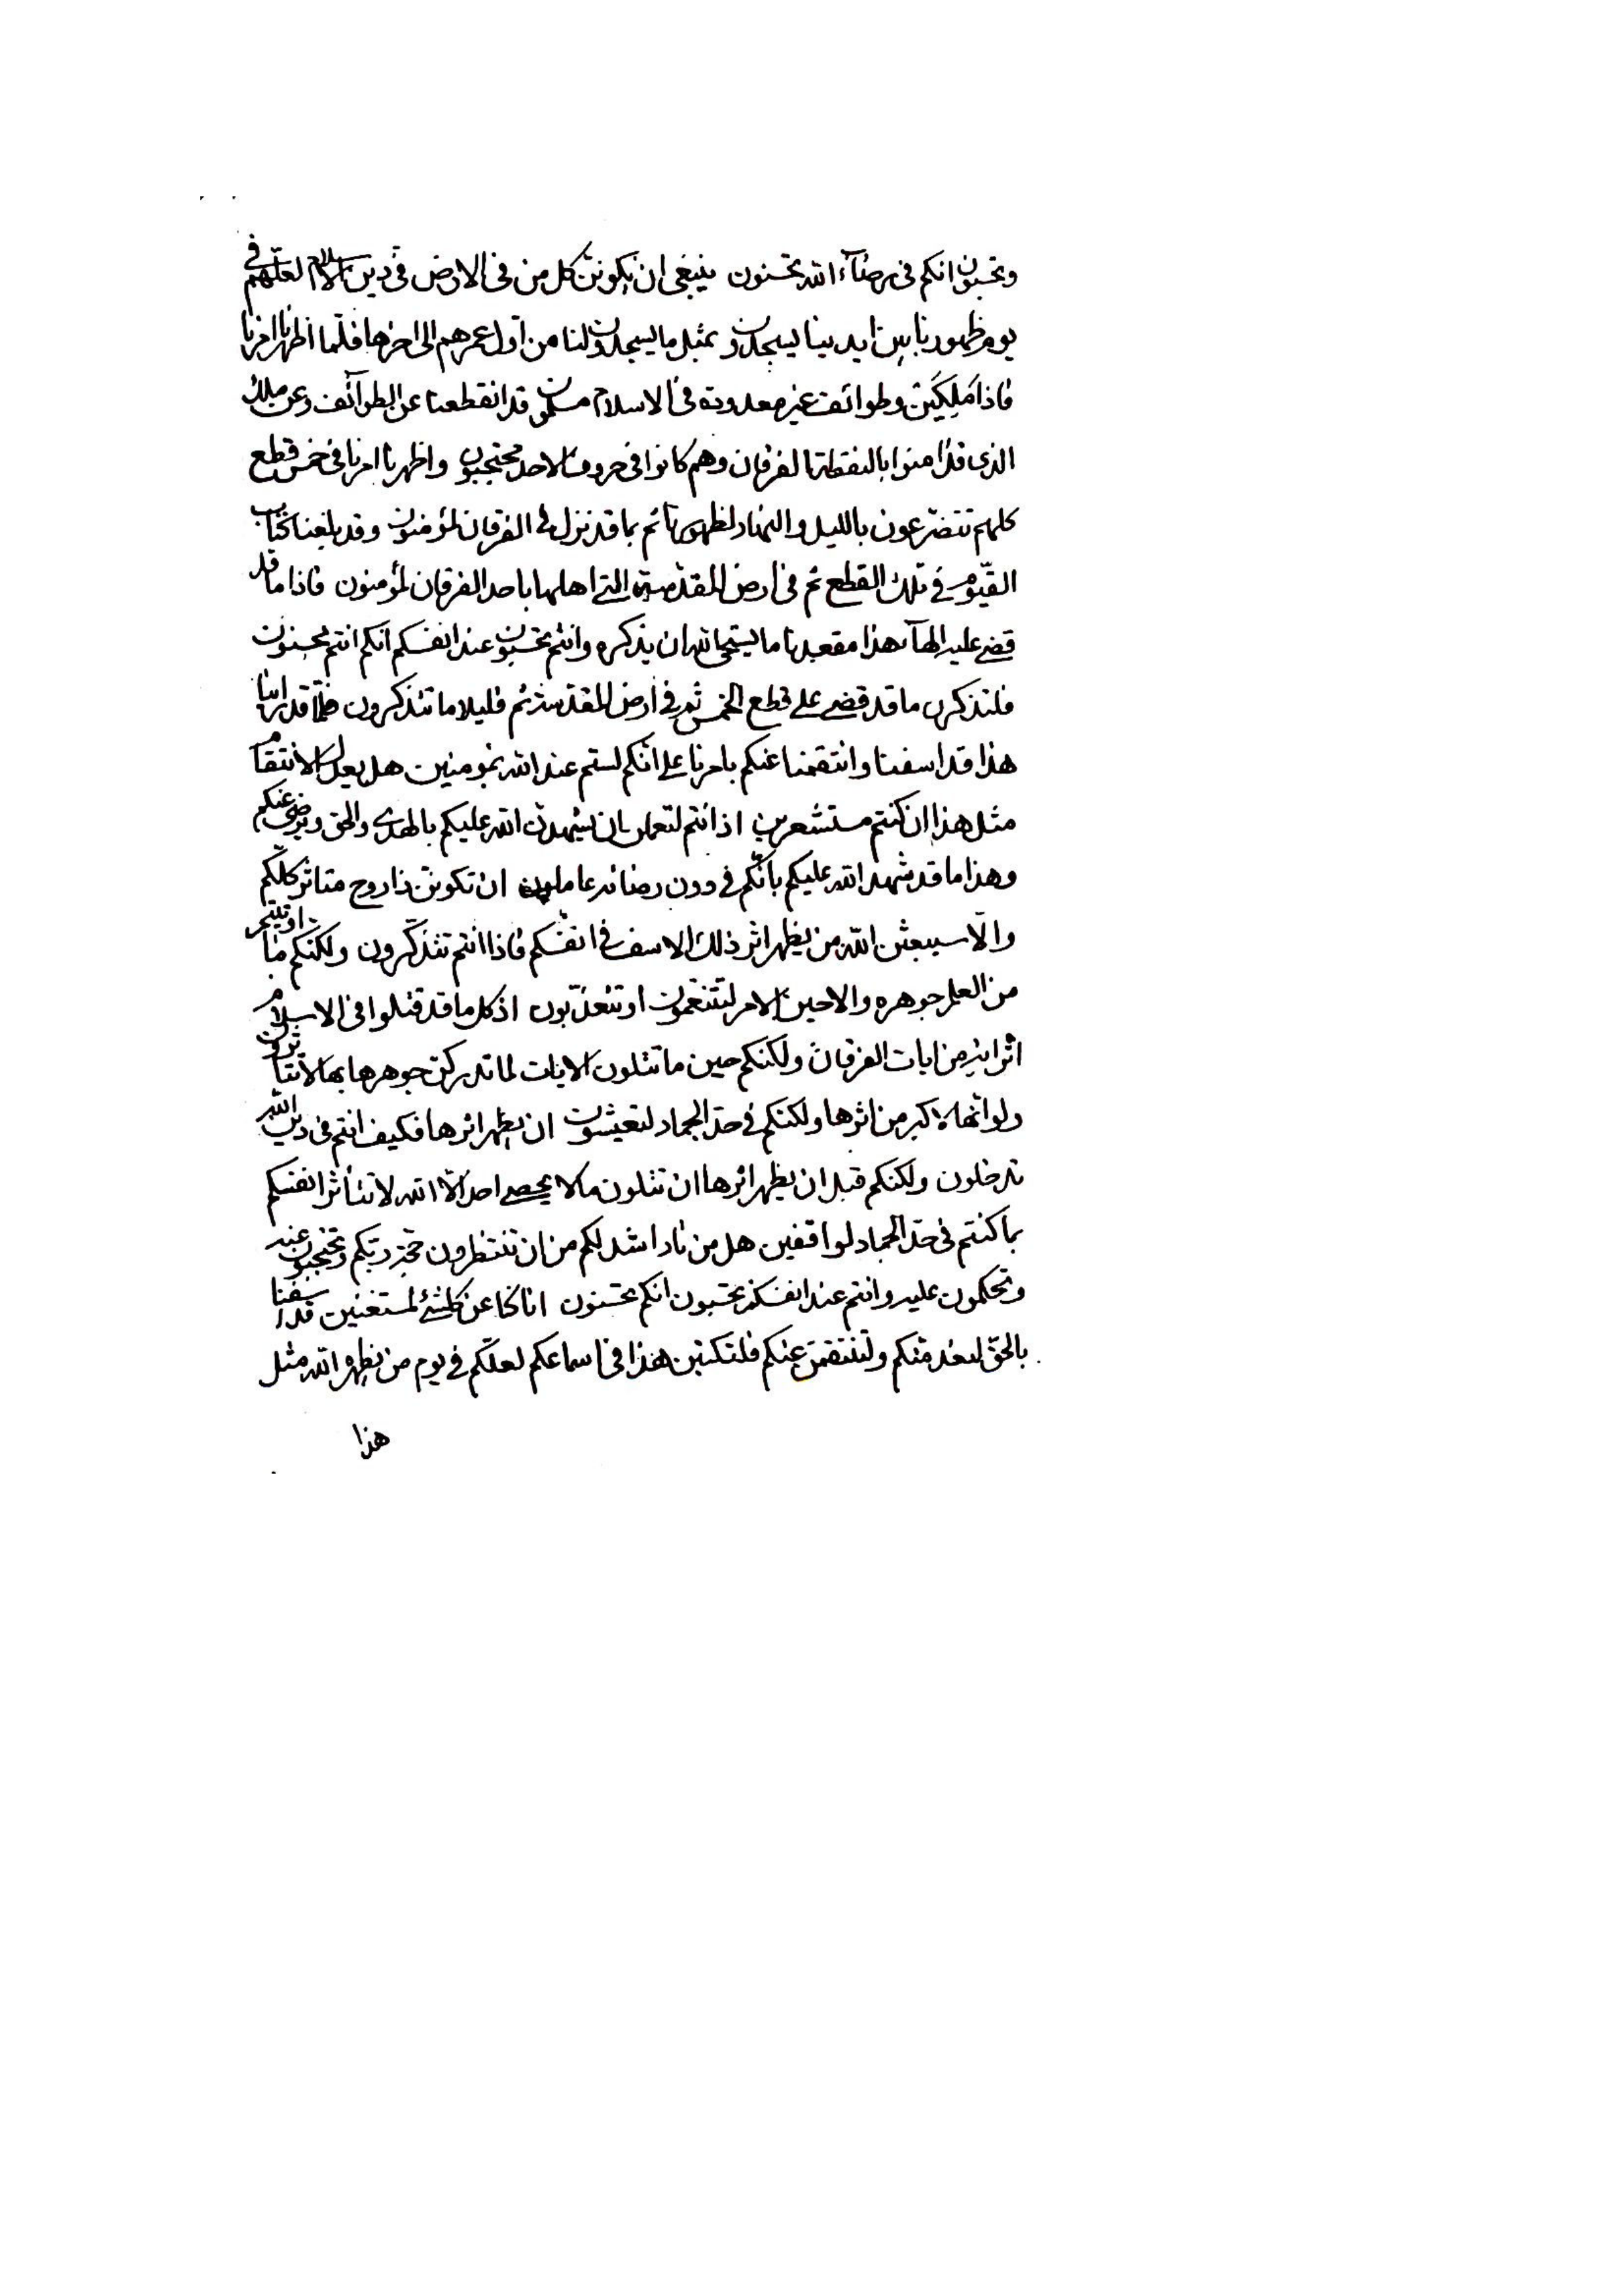 وتحسبون انكم فى رضآء الله تحسنون ينبغى ان يكونن كل من فى الارض فى دين الاسلام لعلهم فى
يوم ظهورنا بين ايدينا ليسجدون بمثل ما يسجدون لنا من اول عمرهم الى اخرها فلما اظهرنا امرنا
فاذا ملكين وطوائف غير معدودة فى الاسلام مسلمون قد انقطعنا عن الطوآئف وعن ملك
الذى قد امنوا بالنقطة الفرقان وهم كانوا فى حروف الاحد محتجبون واظهرنا امرنا فى خمس قطع
كلهم تتضرعون بالليل والنهار لظهورنا ثم بما قد نزل فى الفرقان لمؤمنون وقد بلغنا كتاب
القيوم فى تلك القطع ثم فى ارض المقدسة التى اهلها باحد الفرقان لمؤمنون فاذا ما قد
قضى عليه الهآء هذا مقعدنا ما يستحى الله ان يذكره وانتم تحسبون عند انفسكم انكم انتم محسنون
فلتذكرن ما قد قضى على قطع الخمس ثم فى ارض المقدسة ثم قليلا ما تتذكرون فلما قد راينا
هذا قد اسفنا وانتقمنا عنكم بامرنا على انكم لستم عند الله بمومنين هل يعدل الانتقام
مثل هذا ان كنتم مستشعرين اذ انتم لتعملن بان يشهدن الله عليكم بالهدى والحق ويرضى عنكم
وهذا ما قد شهد الله عليكم بانكم فى دون رضائه عاملون ان تكونن ذا روح متاثر كلكم
والا سيبعثن الله من يظهر اثر ذلك الاسف فى انفسكم فاذا انتم تتذكرون ولكنكم ما اوتيتم
من العلم جوهره والا حين الامر لتتنعمون او تتعذبون اذ كل ما قد قتلوا فى الاسلام
اثر اية من ايات الفرقان ولكنكم حين ما تتلون الايات لما تدركن جوهرها بها لا تتاثرون
ولو انها لاكبر من اثرها ولكنكم فى حد الجماد لتعيشون ان يظهر اثرها فكيف انتم فى دين الله
تدخلون ولكنكم قبل ان يظهر اثرها ان تتلون ما لا يحصى احد الا الله لا تتأثر انفسكم
بما كنتم فى حد الجماد لواقفين هل من نار اشد لكم من ان تنتظرون حجة ربكم وتحتجبون عنه
وتحكمون عليه وانتم عند انفسكم تحسبون انكم تحسنون انا كنا عن كلشئ لمستغنين قد اسفنا
بالحق لبعد منكم ولننتقمن عنكم فلتكتبن هذا فى اسماعكم لعلكم فى يوم من يظهره الله مثل
هذا